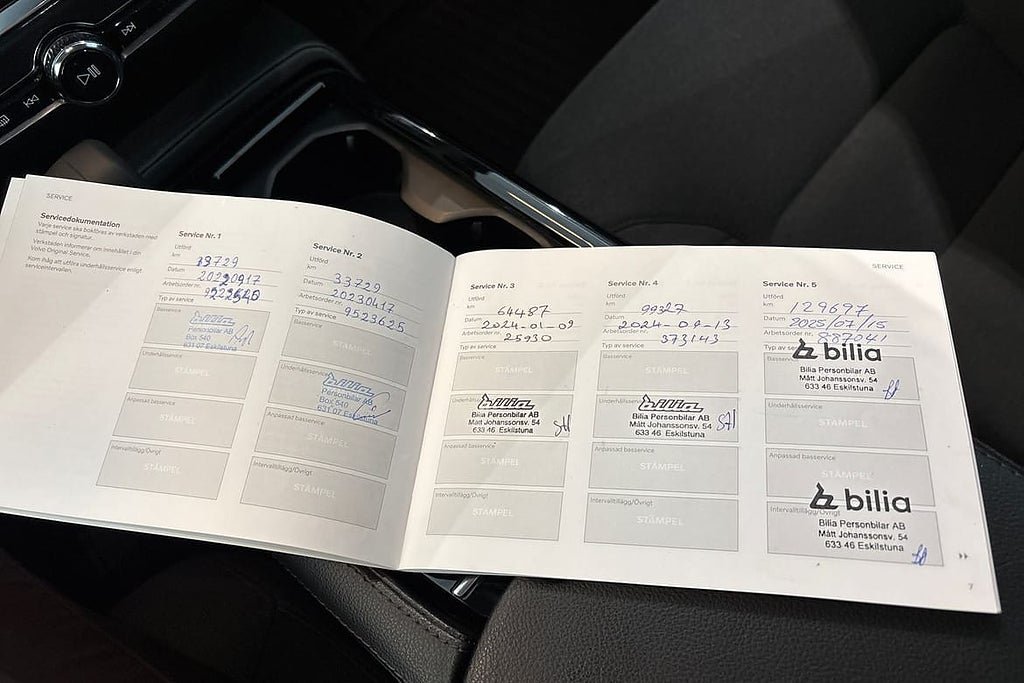 SERVICE
Servicedokumentation
Varje service ska bokföras av verkstaden med
stämpel och signatur.
Verkstaden informerar om innehållet i din
Volvo Original Service.
Kom ihåg att utföra underhållsservice enligt
serviceintervallen.
Service Nr. 1
Utförd
km
33729
Datum
Arbetsorder nr.
Typ av service
Basservice
Personbilar AB
Box 540
631 07 Eskilstuna
Underhållsservice
STÄMPEL
Anpassad basservice
STÄMPEL
Intervalltillägg/Övrigt
STÄMPEL
Service Nr. 2
Utförd
km
33729
Datum
20230417
Arbetsorder nr.
9523625
Typ av service
Basservice
STÄMPEL
Underhållsservice
Bilia
Personbilar AB
Box 540
631 07 Eskilstuna
Anpassad basservice
STÄMPEL
Intervalltillägg/Övrigt
STÄMPEL
Service Nr. 3
Utförd
km
64487
Datum
2024-01-09
Arbetsorder nr.
25930
Typ av service
Basservice
STÄMPEL
Bilia
Bilia Personbilar AB
Mått Johanssonsv. 54
633 46 Eskilstuna
Anpassad basservice
STÄMPEL
Intervalltillägg/Övrigt
STÄMPEL
Service Nr. 4
Utförd
km
99327
Datum
2024-09-13
Arbetsorder nr.
373143
Typ av service
Basservice
STÄMPEL
Bilia
Bilia Personbilar AB
Mått Johanssonsv. 54
633 46 Eskilstuna
Anpassad basservice
STÄMPEL
Intervalltillägg/Övrigt
STÄMPEL
SERVICE
Service Nr. 5
Utförd
km
129697
Datum
2025/07/15
Arbetsorder nr.
887041
bilia
Bilia Personbilar AB
Mått Johanssonsv. 54
633 46 Eskilstuna
Underhållsservice
STÄMPEL
Anpassad basservice
STÄMPEL
Intervalltillägg/Övrigt
bilia
Bilia Personbilar AB
Mått Johanssonsv. 54
633 46 Eskilstuna
7